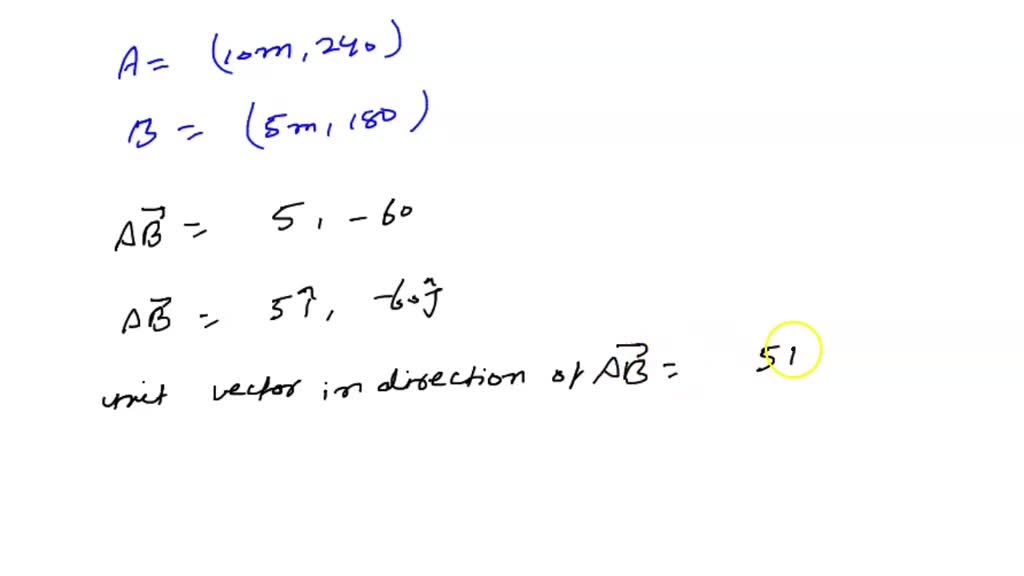 A = (10m, 240)
B = (5m, 180)
AB⃗ = 5, -60
AB⃗ = 5î, -60ĵ
unit vector in direction of AB⃗ = 51